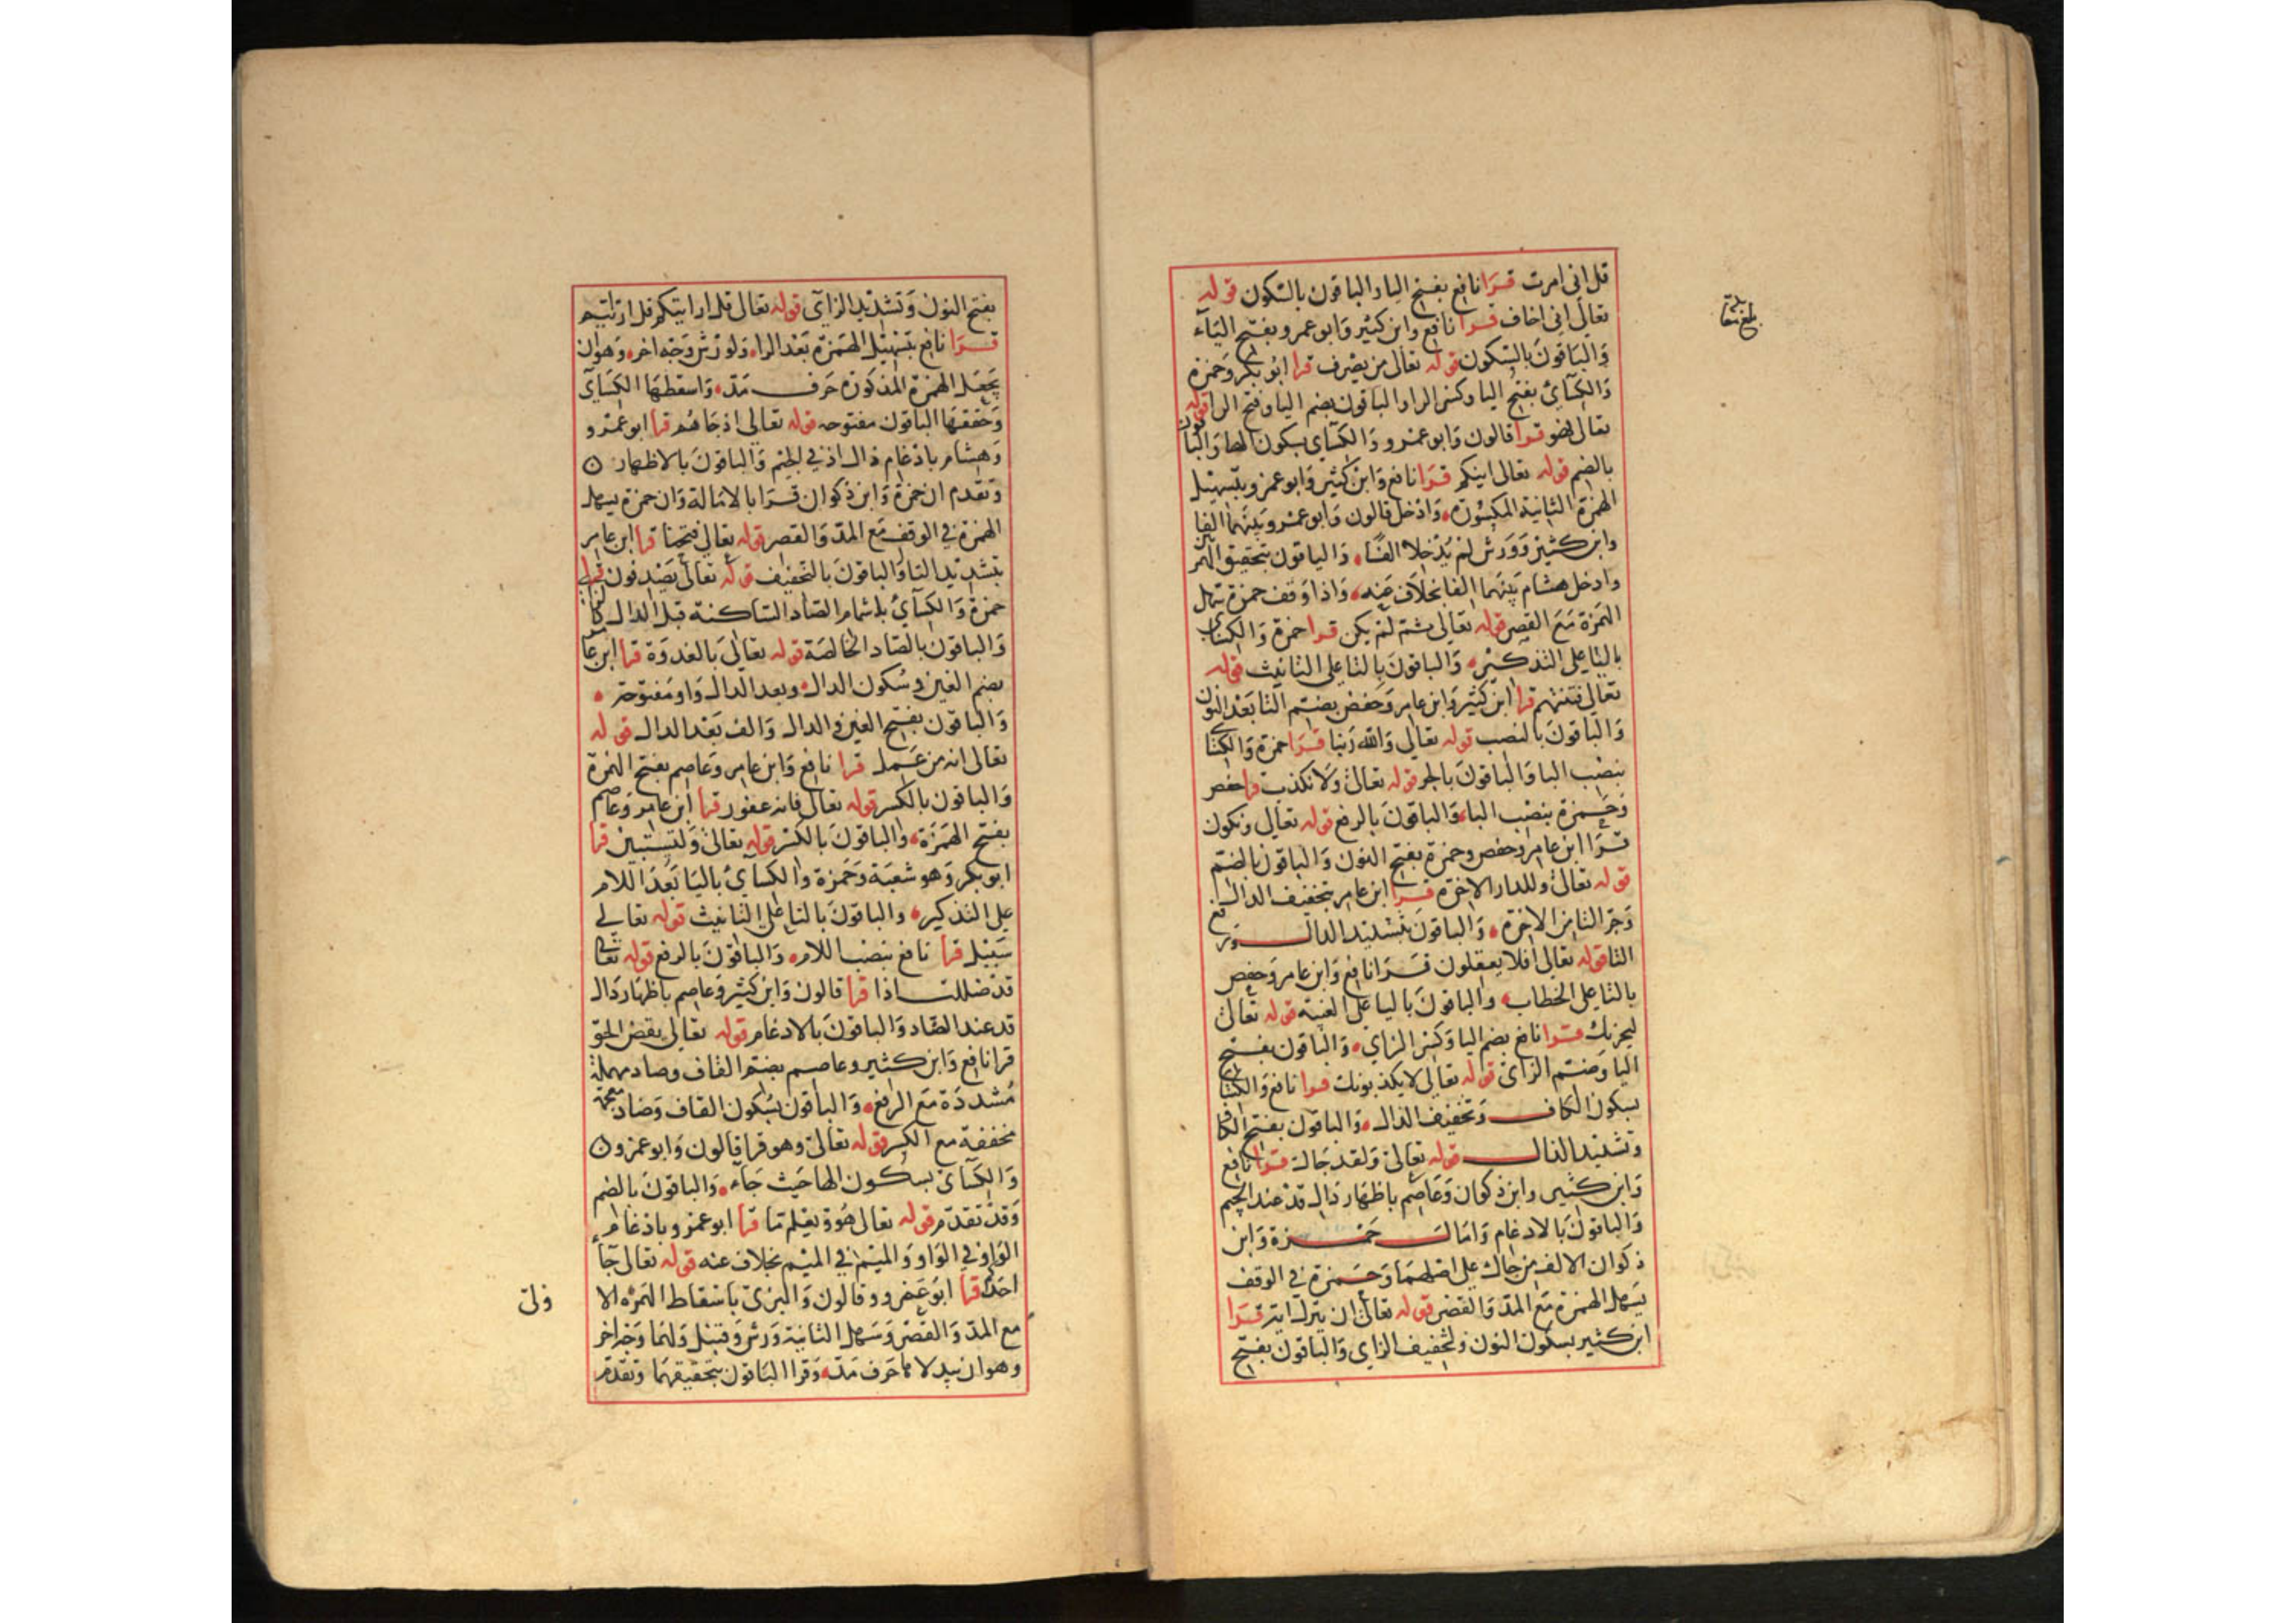 قل اني امرت قرا نافع بفتح اليا والباقون بالسكون قوله
تعالى اني اخاف قرا نافع وابن كثير وابو عمرو بفتح الياء
والباقون بالسكون قوله تعالى من يصرف قرا ابو بكر وحمزة
والكسائي بفتح اليا وكسر الرا والباقون بضم اليا وفتح الرا قوله
تعالى فهو قرا قالون وابو عمرو والكسائي بسكون الها والباقون
بالضم قوله تعالى اينكم قرا نافع وابن كثير وابو عمرو بتسهيل
الهمزة الثانية المكسورة وادخل قالون وابو عمرو بينهما الفا
وابن كثير وورش لم يدخلا الفا والباقون بتحقيق الهمزتين
وادخل هشام بينهما الفا بخلاف عنه واذا وقف حمزة سهل
الهمزة مع القصر قوله تعالى ثم لم يكن قرا حمزة والكسائي
باليا على التذكير والباقون بالتا على التانيث قوله
تعالى فتنتهم قرا ابن كثير وابن عامر وحفص بضم التا بعد النون
والباقون بالنصب قوله تعالى والله ربنا قرا حمزة والكسائي
بنصب البا والباقون بالجر قوله تعالى ولا نكذب قرا حفص
وحمزة بنصب البا والباقون بالرفع قوله تعالى ونكون
قرا ابن عامر وحفص وحمزة بفتح النون والباقون بالضم
قوله تعالى وللدار الاخرة قرا ابن عامر بتخفيف الدال
وجر التا من الاخرة والباقون بتشديد الدال ورفع
التا قوله تعالى افلا يعقلون قرا نافع وابن عامر وحفص
بالتا على الخطاب والباقون باليا على الغيبة قوله تعالى
ليحزنك قرا نافع بضم اليا وكسر الزاي والباقون بفتح
اليا وضم الزاي قوله تعالى لا يكذبونك قرا نافع والكسائي
بسكون الكاف وتخفيف الذال والباقون بفتح الكاف
وتشديد الذال قوله تعالى ولقد جاك قرا نافع
وابن كثير وابن ذكوان وعاصم باظهار دال قد عند الجيم
والباقون بالادغام وامال حمزة وابن
ذكوان الالف من جاك على اصلهما وحمزة في الوقف
يسهل الهمزة مع المد والقصر قوله تعالى ان ينزل اية قرا
ابن كثير بسكون النون وتخفيف الزاي والباقون بفتح
بلغ مقابلة
بفتح النون وتشديد الزاي قوله تعالى قل ارايتكم قل ارايتم
قرا نافع بتسهيل الهمزة بعد الرا ولورش وجه اخر وهو ان
يجعل الهمزة المذكورة حرف مد واسقطها الكسائي
وحققها الباقون مفتوحه قوله تعالى اذ جاهم قرا ابو عمرو
وهشام بادغام ذال اذ في الجيم والباقون بالاظهار
وتقدم ان حمزة وابن ذكوان قرا بالامالة وان حمزة يسهل
الهمزة في الوقف مع المد والقصر قوله تعالى فتحنا قرا ابن عامر
بتشديد التا والباقون بالتخفيف قوله تعالى يصدفون قرا
حمزة والكسائي باشمام الصاد الساكنة قبل الدال كالزاي
والباقون بالصاد الخالصة قوله تعالى بالغدوة قرا ابن عامر
بضم الغين وسكون الدال وبعد الدال واو مفتوحة
والباقون بفتح الغين والدال والف بعد الدال قوله
تعالى انه من عمل قرا نافع وابن عامر وعاصم بفتح الهمزة
والباقون بالكسر قوله تعالى فانه غفور قرا ابن عامر وعاصم
بفتح الهمزة والباقون بالكسر قوله تعالى ولتستبين قرا
ابو بكر وهو شعبة وحمزة والكسائي باليا بعد اللام
على التذكير والباقون بالتا على التانيث قوله تعالى
سبيل قرا نافع بنصب اللام والباقون بالرفع قوله تعالى
قد ضللت اذا قرا قالون وابن كثير وعاصم باظهار دال
قد عند الضاد والباقون بالادغام قوله تعالى يقص الحق
قرا نافع وابن كثير وعاصم بضم القاف وصاد مهملة
مشددة مع الرفع والباقون بسكون القاف وضاد معجمة
مخففة مع الكسر قوله تعالى وهو قرا قالون وابو عمرو
والكسائي بسكون الها حيث جاء والباقون بالضم
وقد تقدم قوله تعالى هو ويعلم ما قرا ابو عمرو بادغام
الواو في الواو والميم في الميم بخلاف عنه قوله تعالى جاء
احدكم قرا ابو عمرو وقالون والبزي باسقاط الهمزة الاولى
مع المد والقصر وسهل الثانية ورش وقنبل ولهما وجه اخر
وهو ان يبدلاها حرف مد وقرا الباقون بتحقيقهما وتقدم